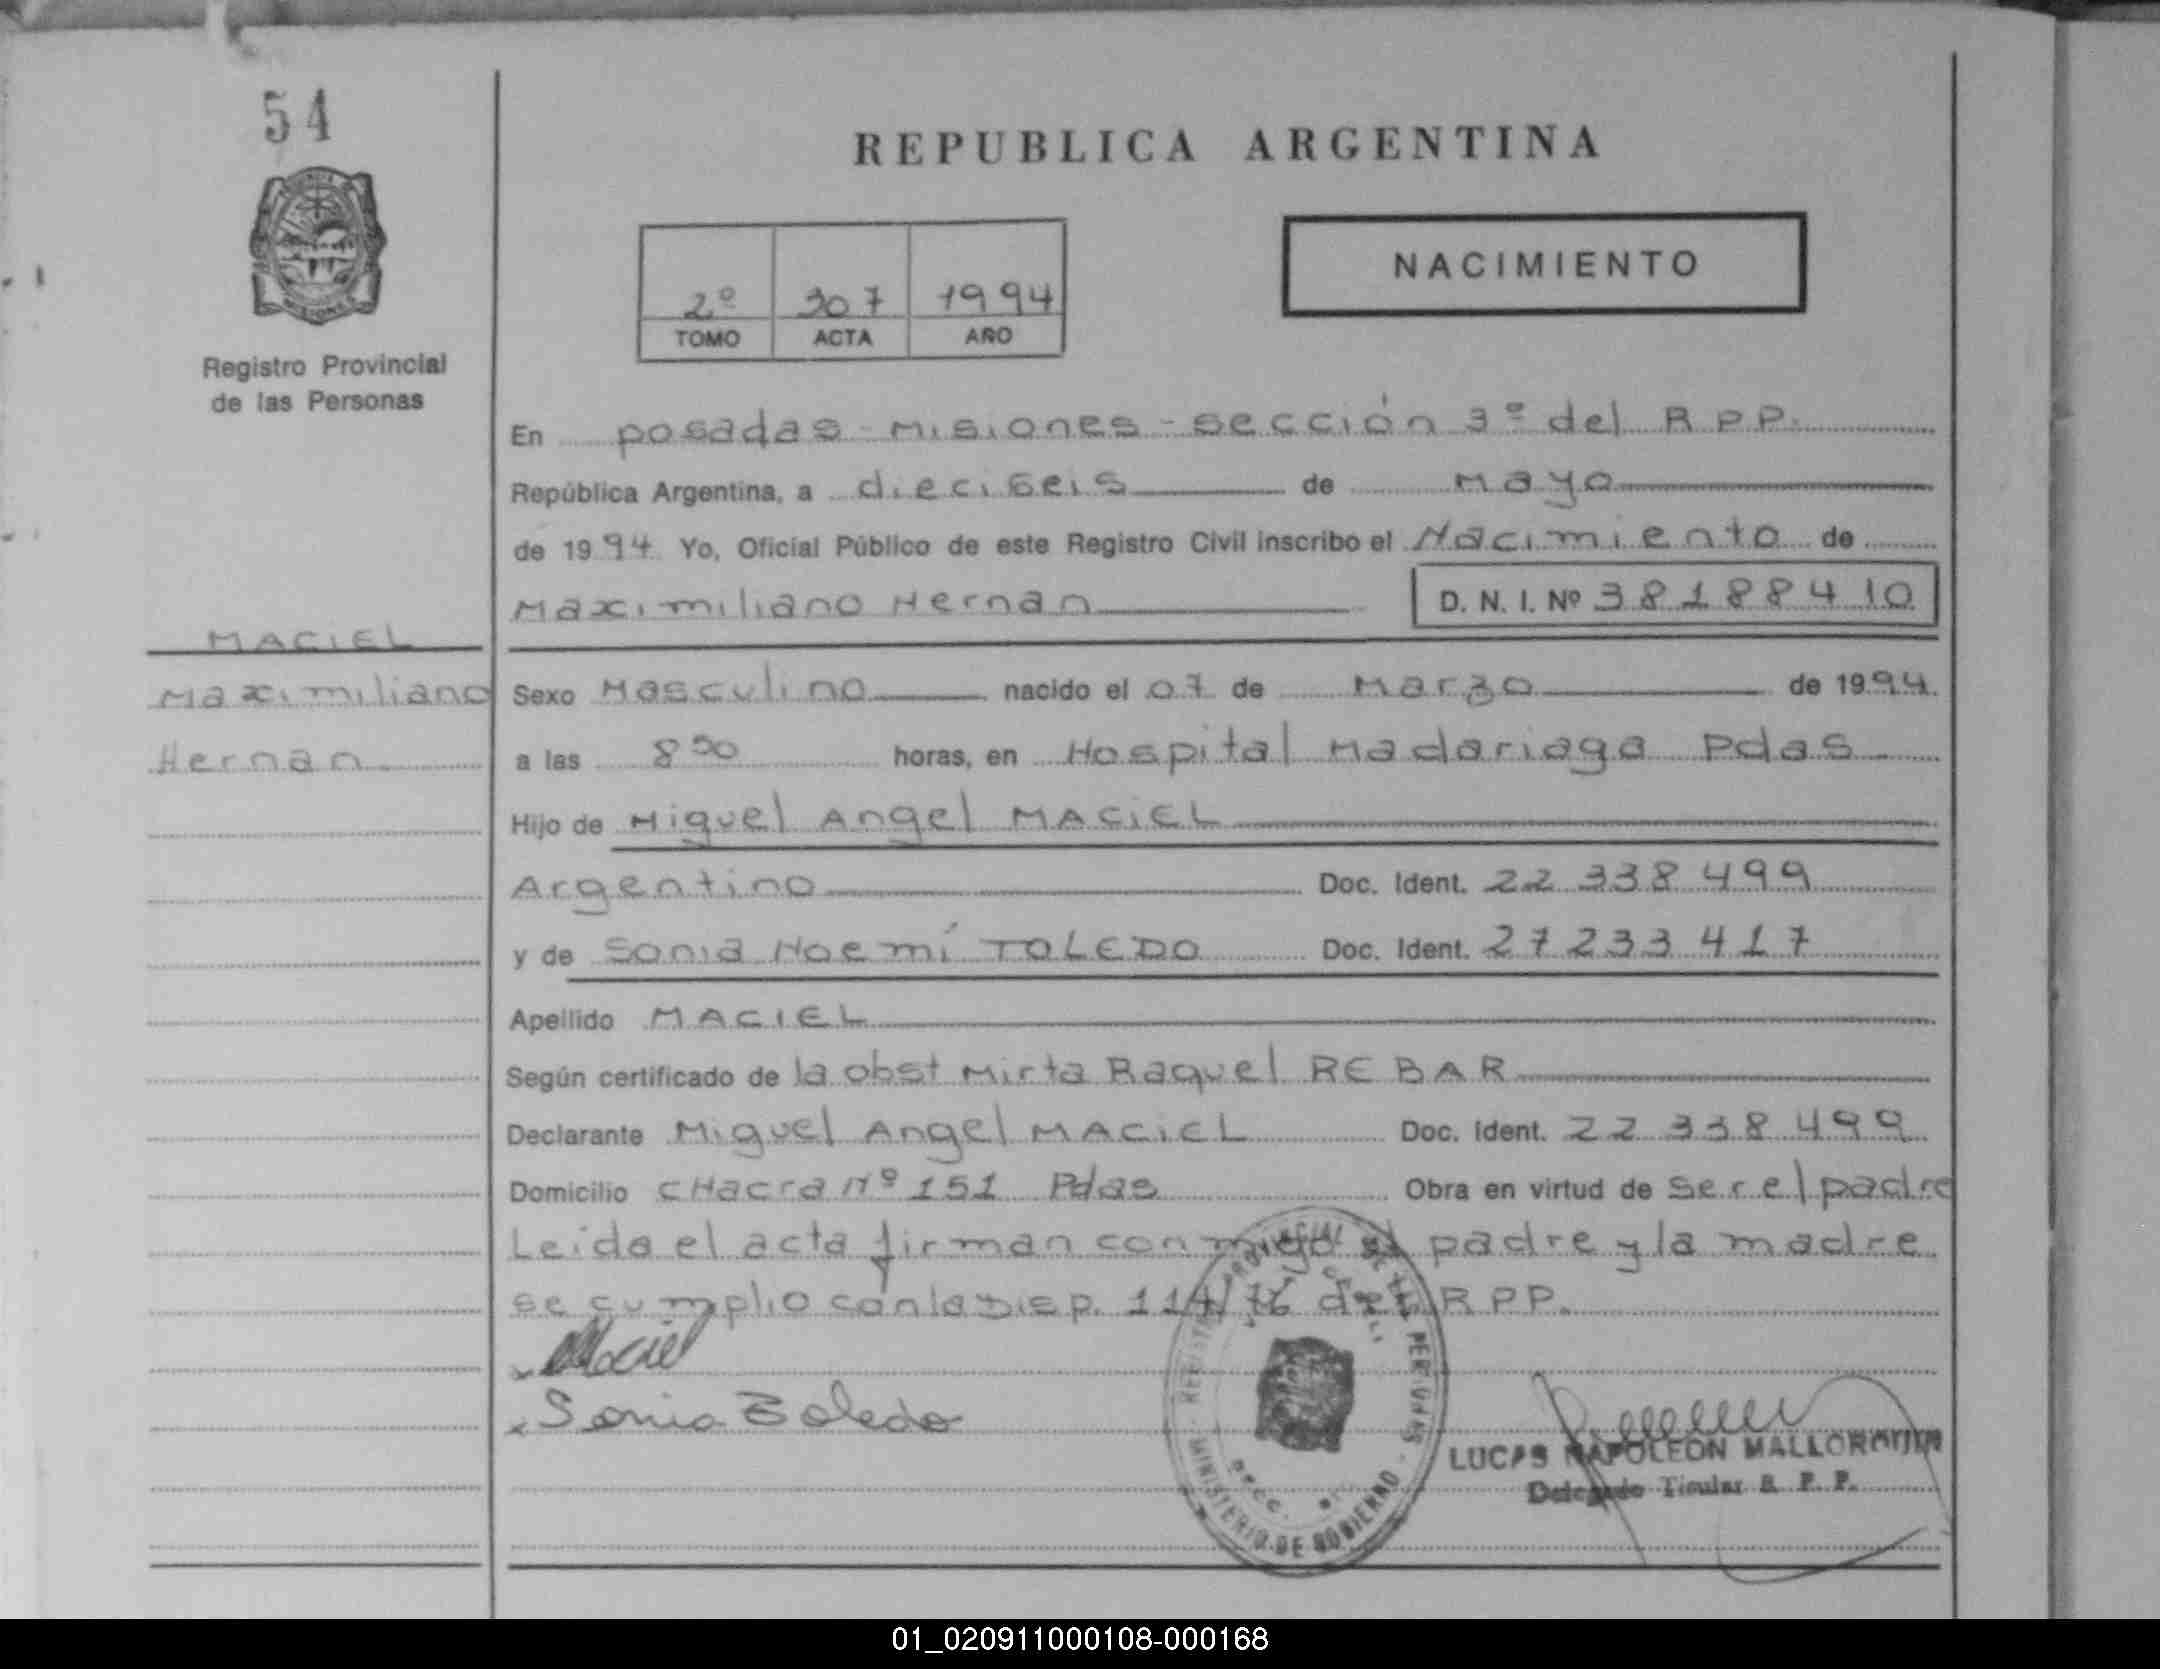 54
REPUBLICA ARGENTINA
NACIMIENTO
2º 307 1994
TOMO ACTA AÑO
Registro Provincial
de las Personas
En posadas - Misiones - sección 3º del R P P.
República Argentina, a dieciseis de Mayo
de 1994 Yo, Oficial Público de este Registro Civil inscribo el Nacimiento de
Maximiliano Hernan D. N. I. Nº 38188410
MACIEL
Maximiliano
Hernan
Sexo Masculino nacido el 07 de Marzo de 1994
a las horas, en Hospital Madariaga Pdas
Hijo de Miguel Angel MACIEL
Argentino Doc. Ident. 22 338 499
y de Sonia Noemí TOLEDO Doc. Ident. 27 233 417
Apellido MACIEL
Según certificado de la obst Mirta Raquel REBAR
Declarante Miguel Angel MACIEL Doc. Ident. 22 338 499
Domicilio CHacra Nº 151 Pdas Obra en virtud de ser el padre
Leida el acta firman conmigo el padre y la madre
se cumplio con la Disp. 114/76 del R PP.
Maciel
Sonia Toledo
REGISTRO PROVINCIAL DE LAS PERSONAS
MINISTERIO DE GOBIERNO
LUCAS NAPOLEON
Delegado Titular R. P. P.
01_020911000108-000168